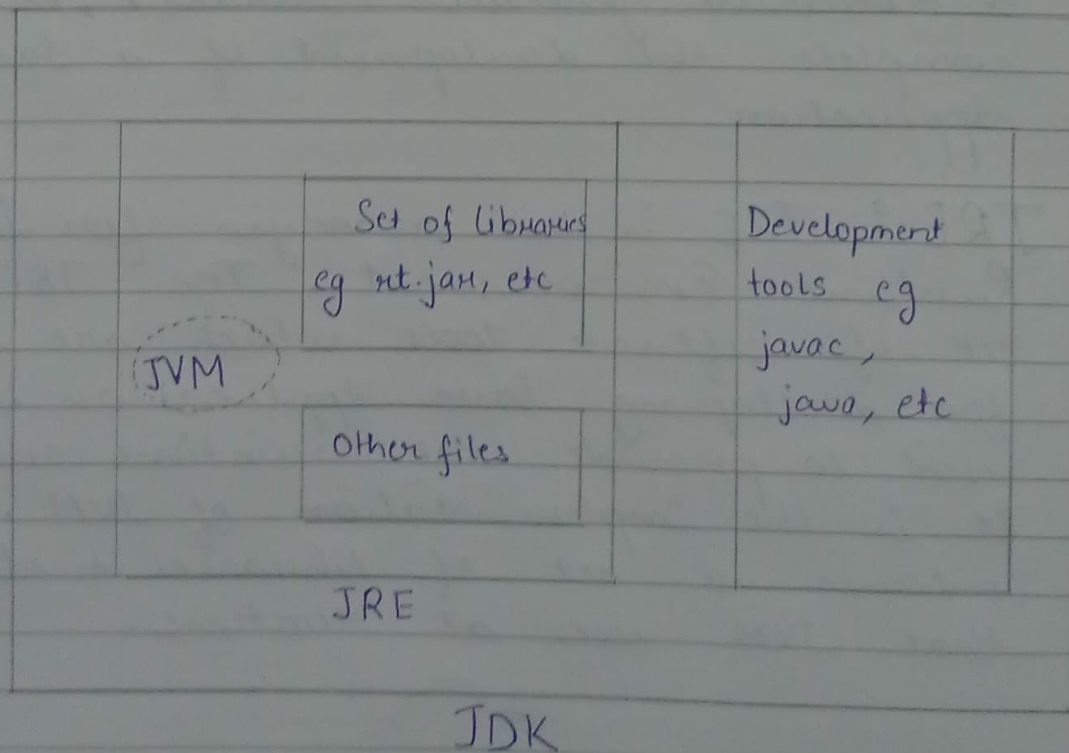 Set of libraries
eg rt.jar, etc
JVM
Other files
JRE
Development
tools eg
javac,
java, etc
JDK